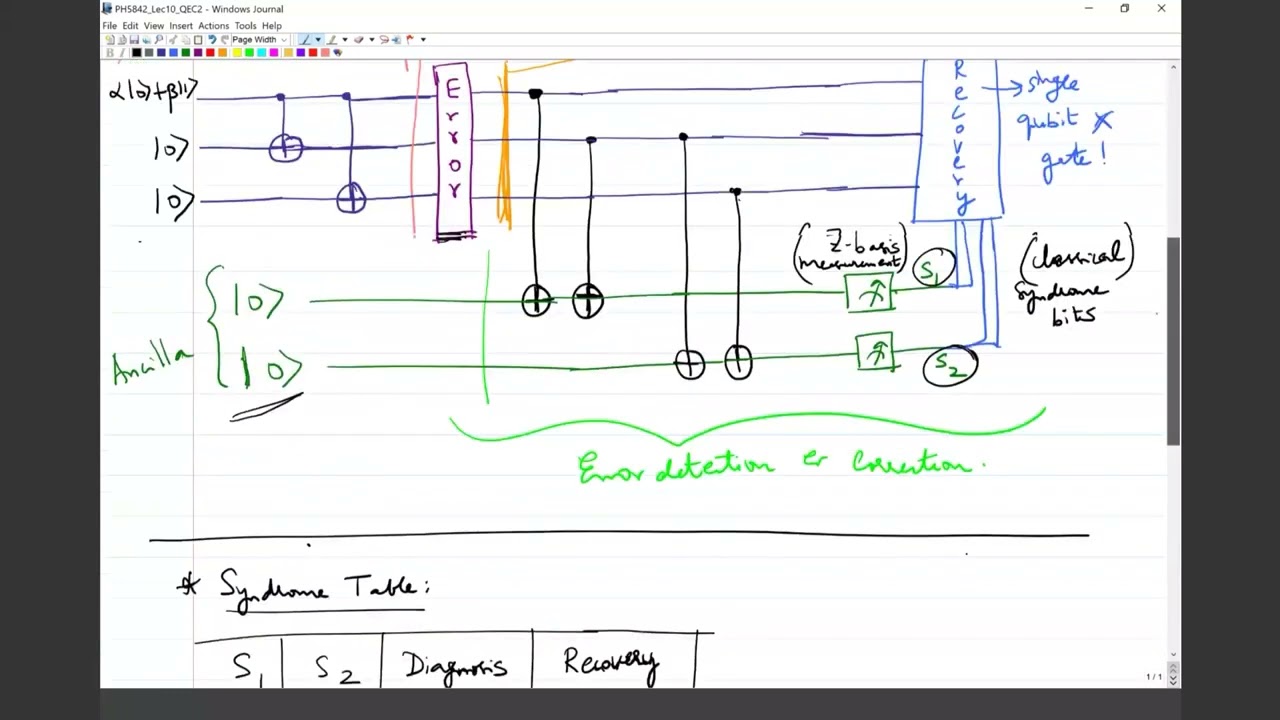 PH5842_Lec10_QEC2 - Windows Journal
File Edit View Insert Actions Tools Help
Page Width
α|0⟩+β|1⟩
|0⟩
|0⟩
Error
Recovery
→ single
qubit X
gate!
Ancilla
|0⟩
|0⟩
(Z-basis
measurement)
S₁
S₂
(Classical)
Syndrome
bits
Error detection & Correction.
* Syndrome Table:
S₁ S₂ Diagnosis Recovery
1 / 1